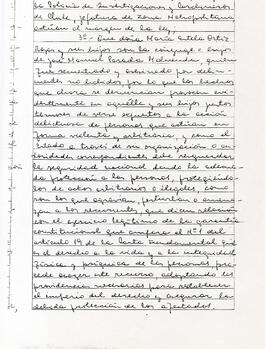 la Policía de Investigaciones y Carabineros
de Chile, jefatura de Zona Metropolitana
actúen al margen de la ley.
3º.- Que doña María Estela Ortiz
Rojas y sus hijos son la cónyuge e hijos
de José Manuel Parada Maluenda, quien
fue secuestrado y asesinado por
los hechos
que ahora se denuncian provocan evi-
dentemente en aquella y sus hijos justos
temores de verse expuestos a la acción
delictiva de personas que actúan en
forma violenta y arbitraria, como el
Estado a través de su organización o au-
toridades correspondientes debe resguardar
la seguridad nacional dando la adecua-
da protección a las personas, protegiéndo-
los de actos arbitrarios o ilegales, como
son los que agravan, perturban o amena-
zan a los recurrentes, que dicen relación
con el ejercicio legítimo de la garantía
constitucional que ampara el Nº1 del
artículo 19 de la Carta Fundamental, que
es el derecho a la vida y a la integridad
física y psíquica de las personas, pro-
cede acoger este recurso, adoptando las
providencias necesarias para restablecer
el imperio del derecho y asegurar la
debida protección de los afectados.